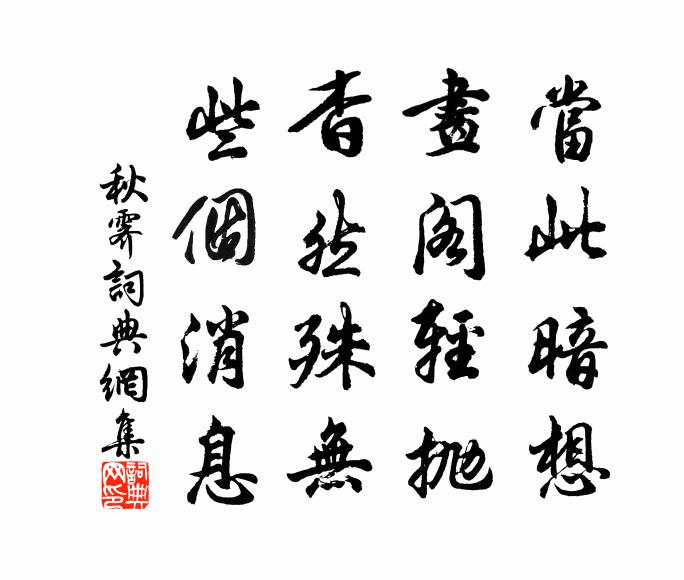 當此暗想
畫閣輕拋
杳然殊無
些個消息
秋霽詞典網集
詞典網印